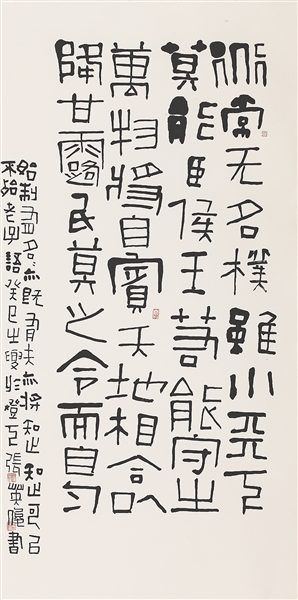 道常无名樸雖小天下
莫能臣侯王若能守之
萬物將自賓天地相合以
降甘露民莫之令而自匀
始制有名名亦既有夫亦將知止知止可以
不殆老子語癸巳之夏於燈下張英書